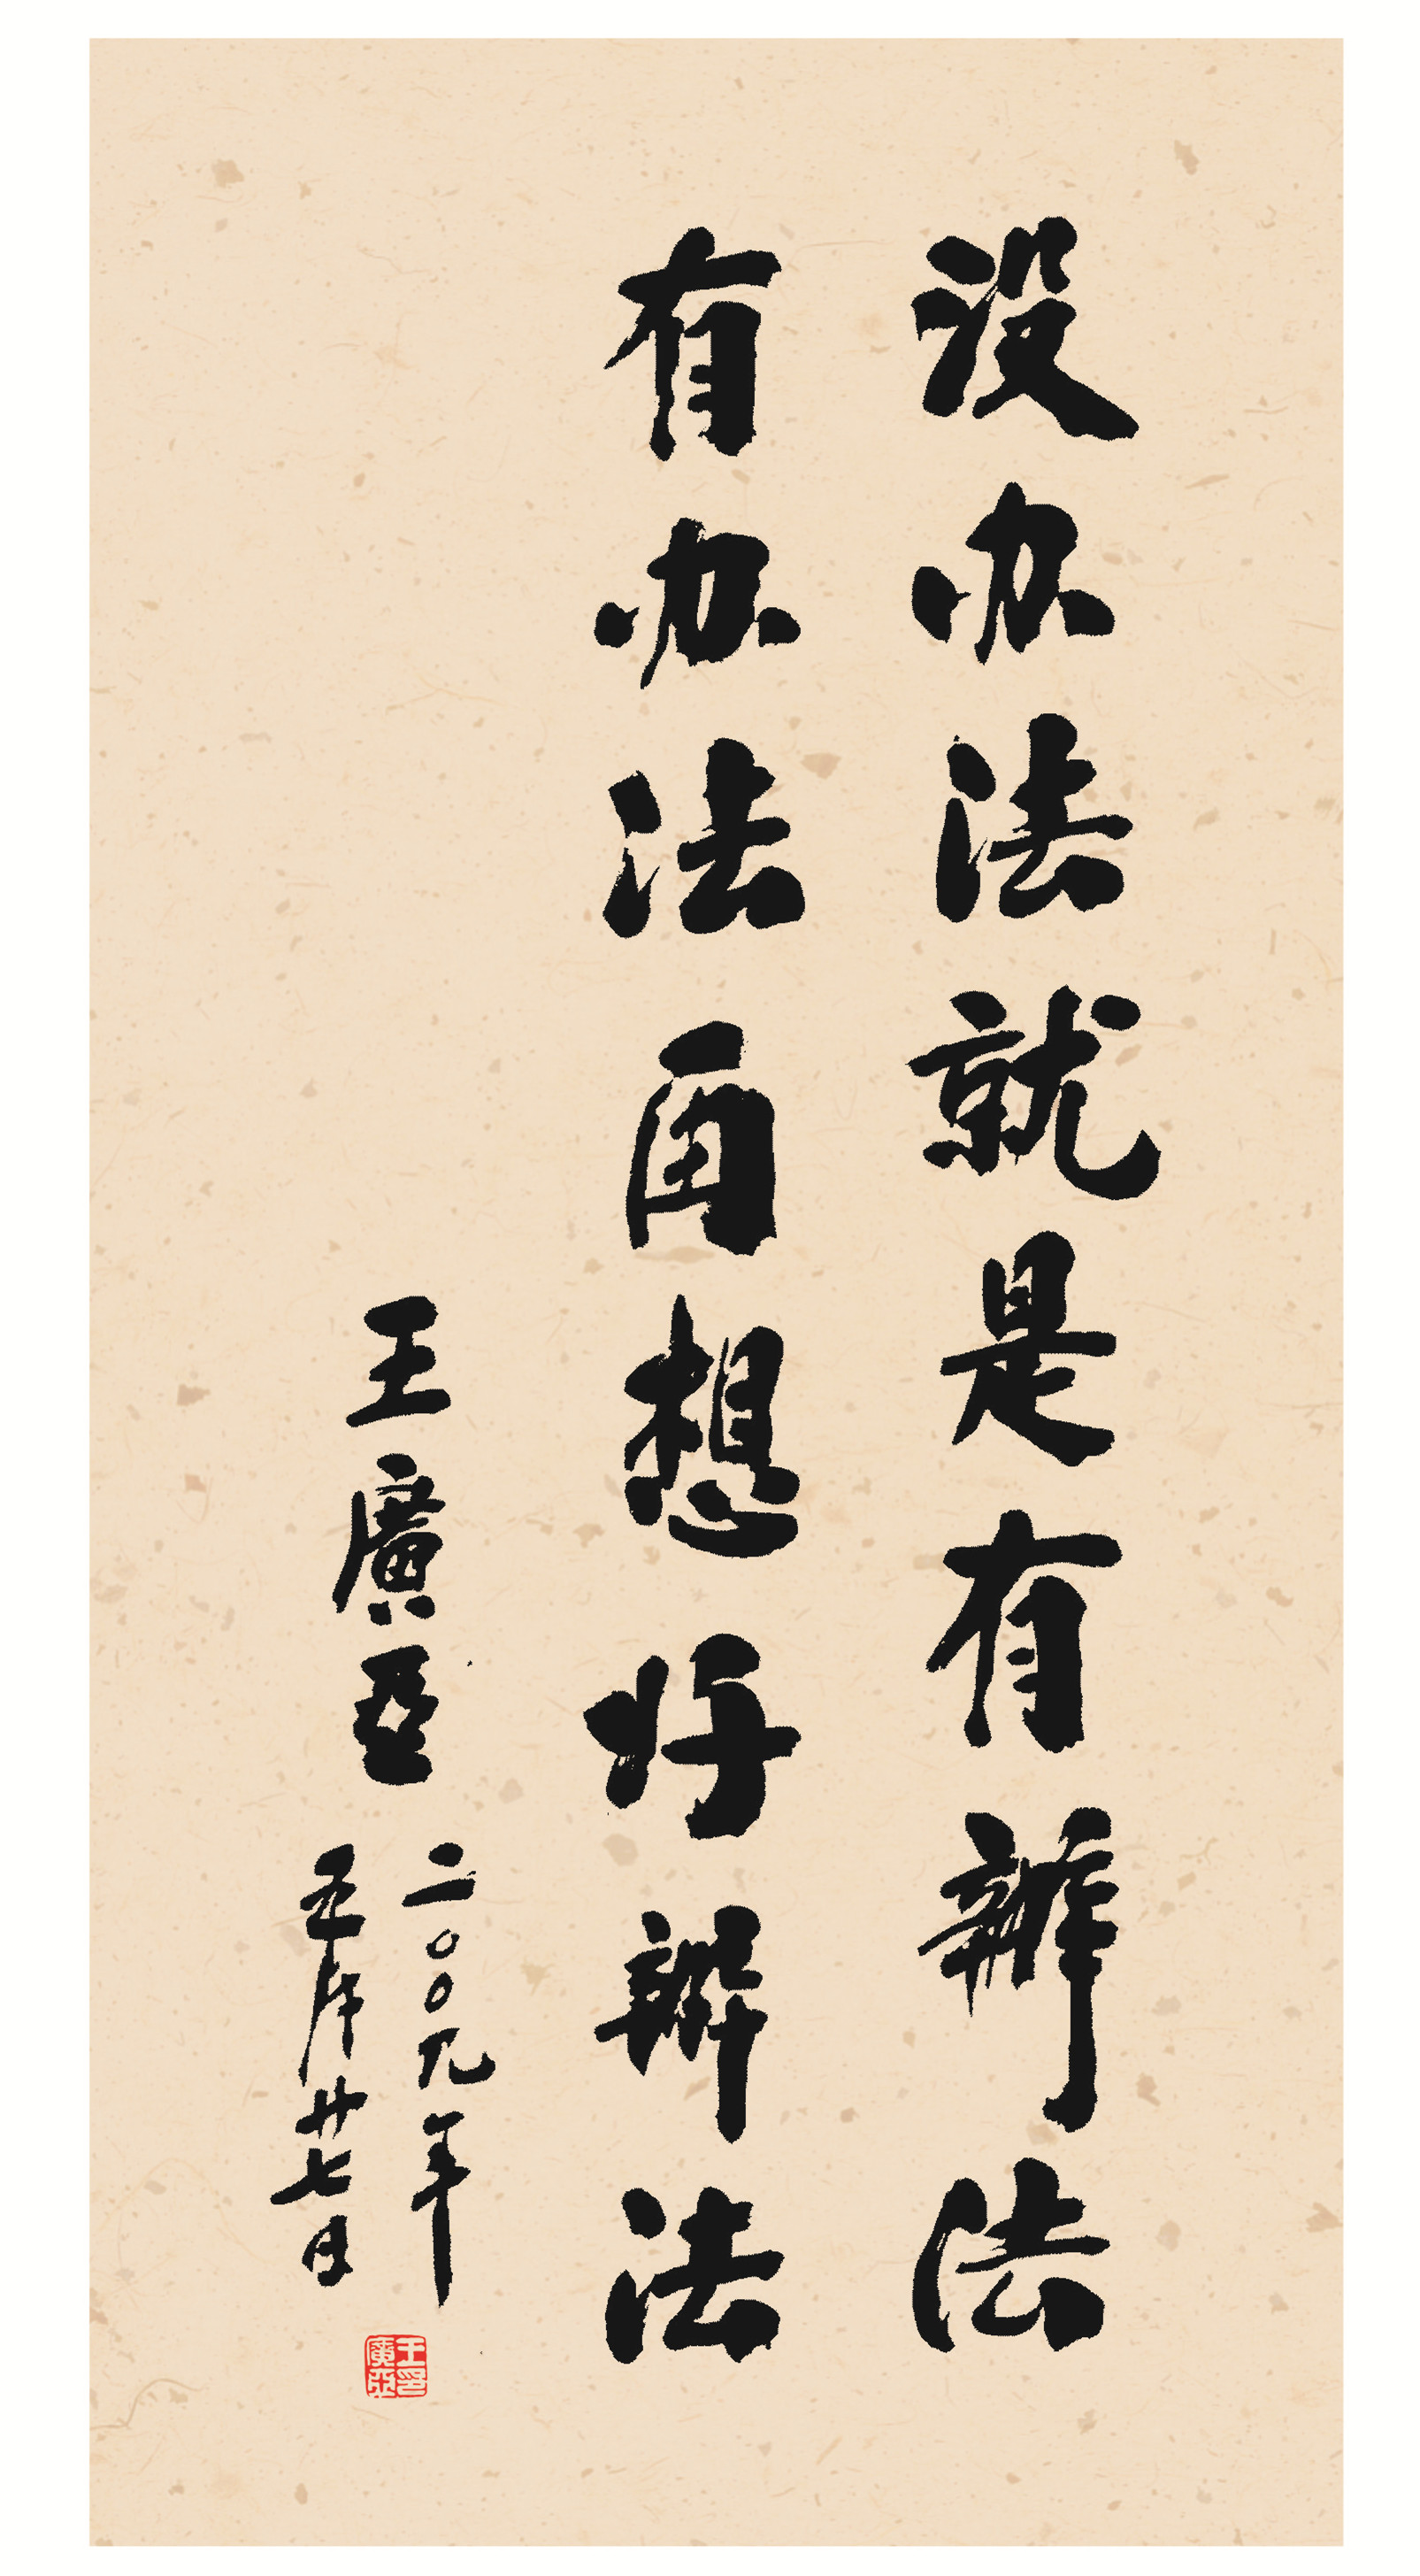 没办法就是有辦法
有办法再想好辦法
王廣亞
二〇〇九年
五月廿七日
王印廣亞